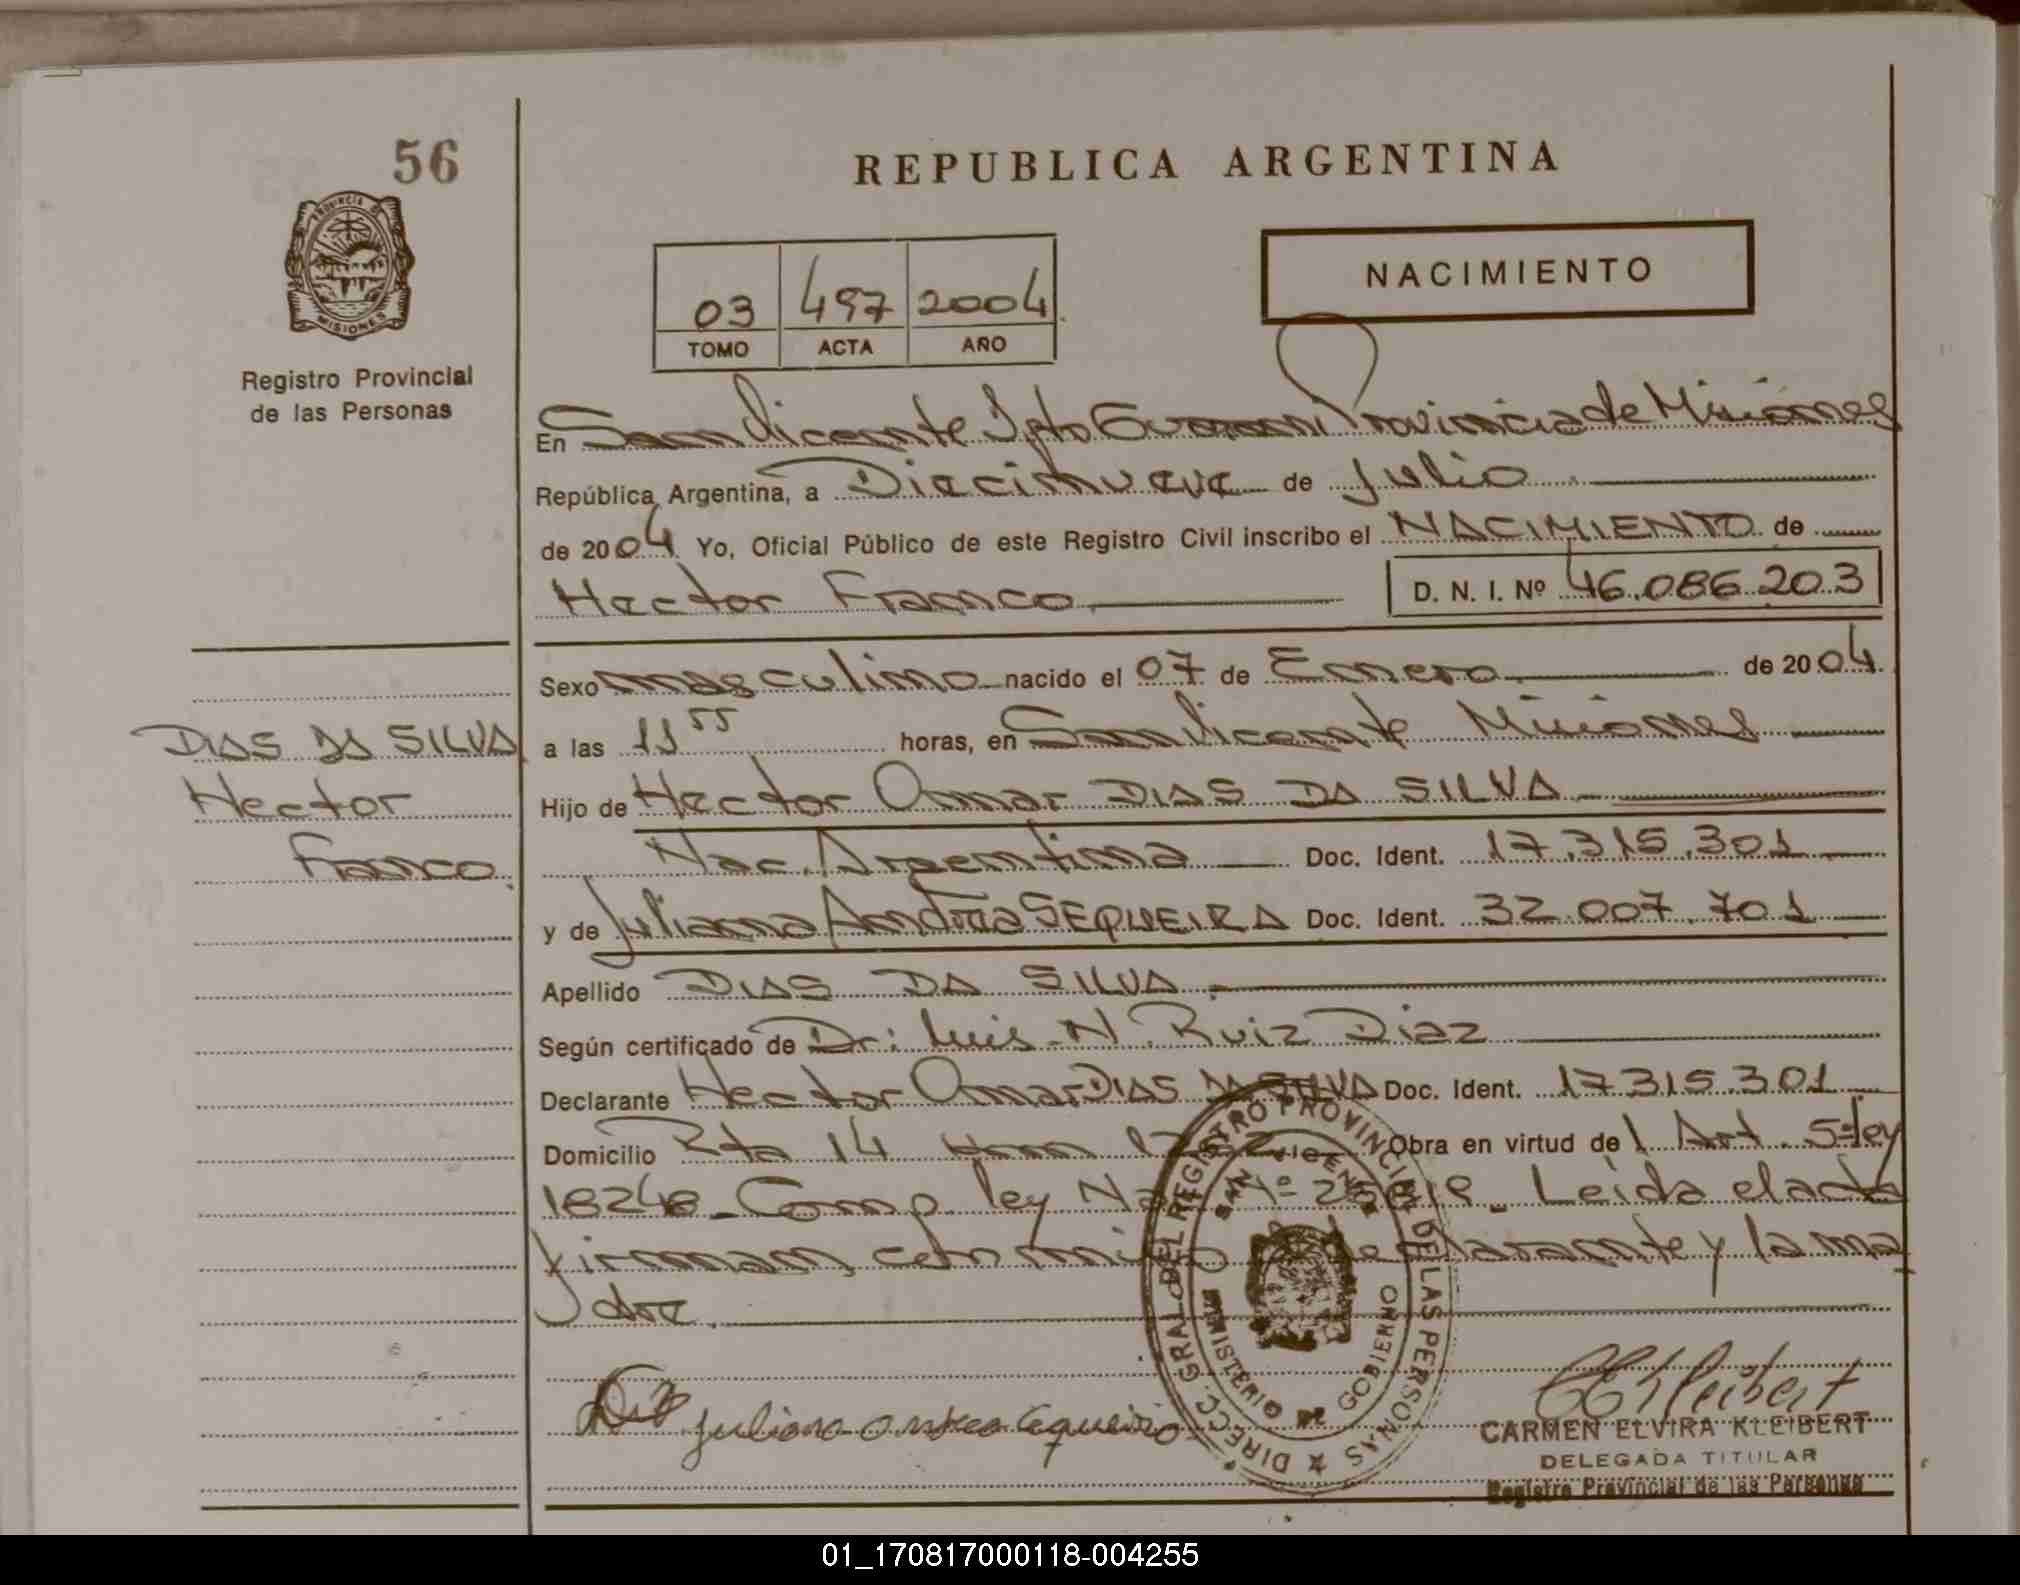 56
REPUBLICA ARGENTINA
PROVINCIA DE
MISIONES
Registro Provincial
de las Personas
NACIMIENTO
03 497 2004
TOMO ACTA AÑO
En San Vicente Dpto Guarani Provincia de Misiones
República Argentina, a Diecinueve de Julio
de 2004 Yo, Oficial Público de este Registro Civil inscribo el NACIMIENTO de
Hector Franco D. N. I. Nº 46.086.203
Sexo masculino nacido el 07 de Enero de 2004
a las 11 55 horas, en San Vicente Misiones
Hijo de Hector Omar DIAS DA SILVA
Nac. Argentina Doc. Ident. 17.315.301
y de Juliana Andrea SEQUEIRA Doc. Ident. 32.007.701
Apellido DIAS DA SILVA
Según certificado de Dr: Luis N. Ruiz Diaz
Declarante Hector Omar DIAS DA SILVA Doc. Ident. 17.315.301
Domicilio Rta 14 Obra en virtud del Art. 5º ley
18248 Comp. ley Leida el acta
firman conmigo declarante y la ma
dre.
DIAS DA SILVA
Hector
Franco.
DIRECC. GRAL. DEL REGISTRO PROVINCIAL DE LAS PERSONAS
SAN VICENTE
MINISTERIO DE GOBIERNO
CARMEN ELVIRA KLEIBERT
DELEGADA TITULAR
Registro Provincial de las Personas
01_170817000118-004255